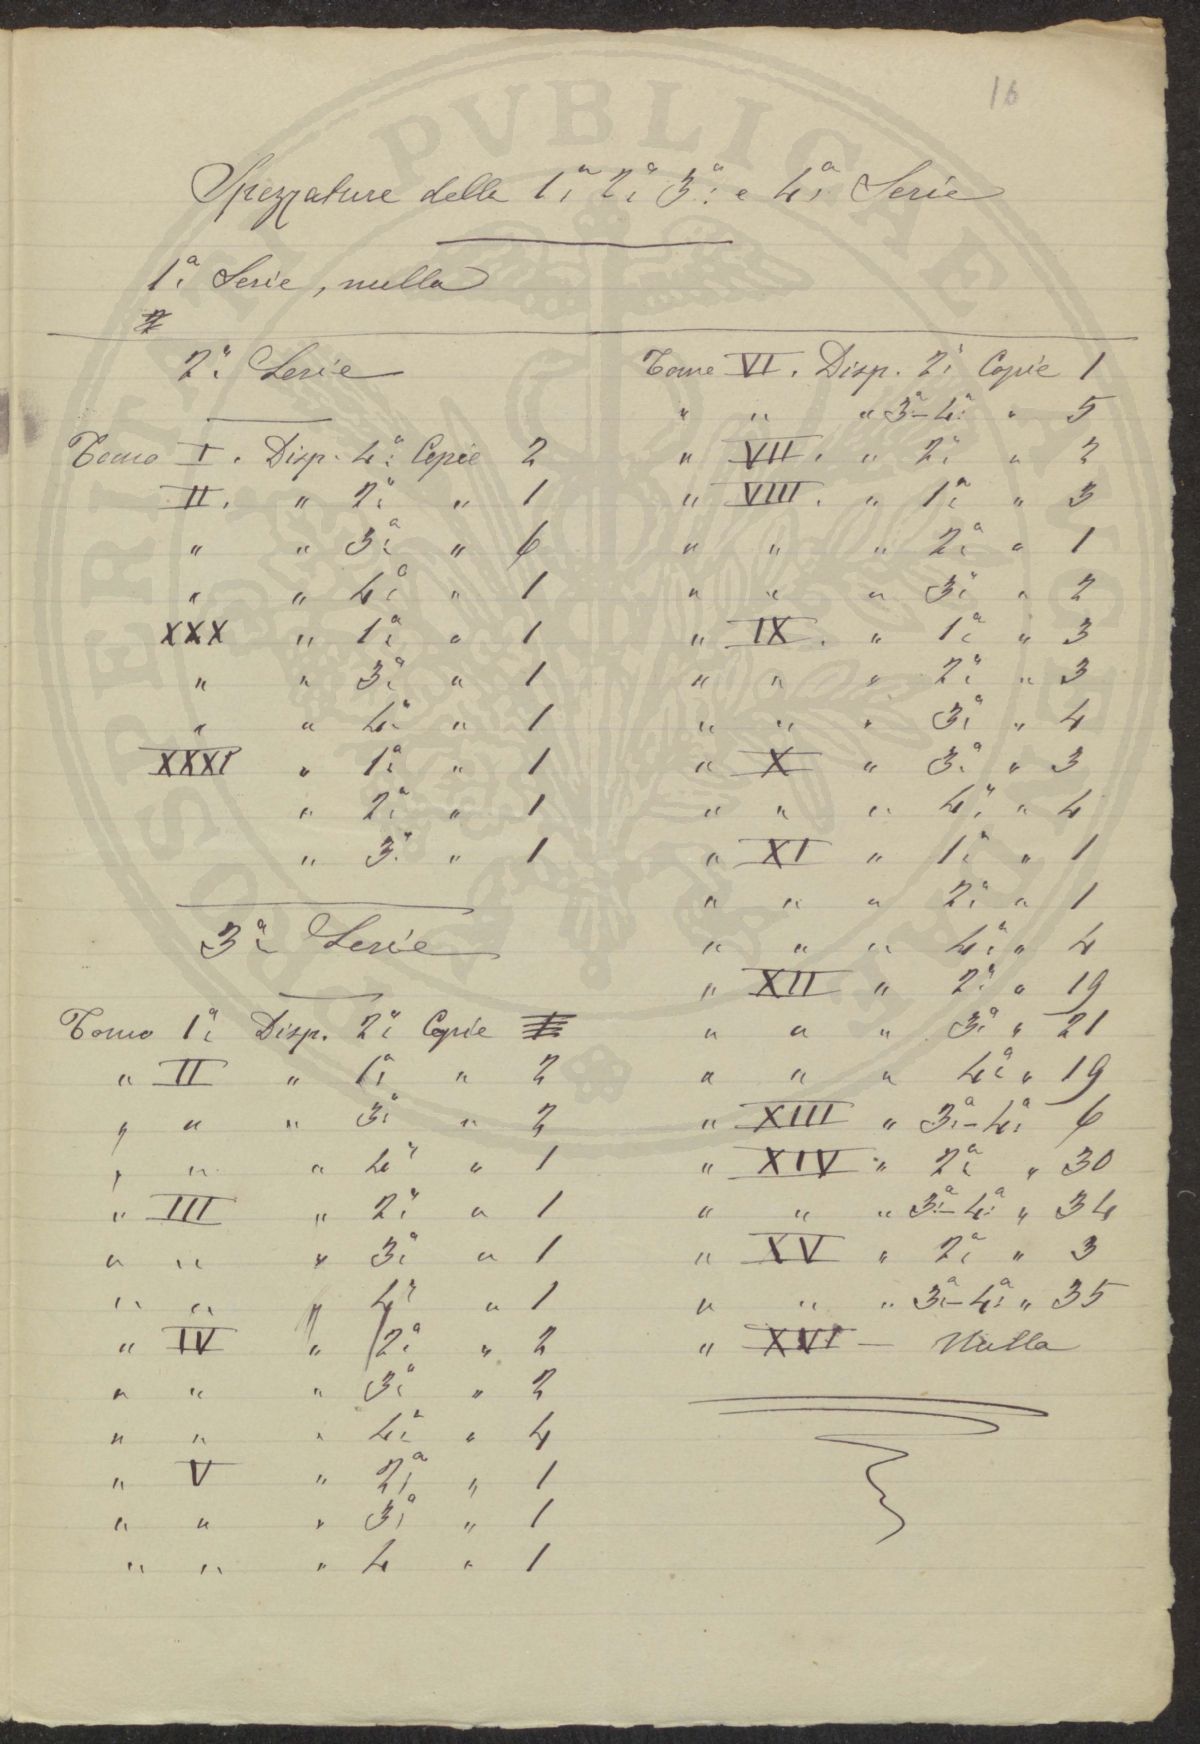 16
Spezzature delle 1ª 2ª 3ª e 4ª Serie
1ª Serie, nulla
2ª Serie
Tomo I. Disp. 4ª Copie 2
II. " 2ª " 1
" " 3ª " 6
" " 4ª " 1
XXX " 1ª " 1
" " 3ª " 1
" " 4ª " 1
XXXI " 1ª " 1
" 2ª " 1
" 3ª " 1
3ª Serie
Tomo 1ª Disp. 2ª Copie
" II " 1ª " 2
" " " 3ª " 2
" " " 4ª " 1
" III " 2ª " 1
" " " 3ª " 1
" " " 4ª " 1
" IV " 2ª " 2
" " " 3ª " 2
" " " 4ª " 4
" V " 2ª " 1
" " " 3ª " 1
" " " 4 " 1
Tomo VI. Disp. 2ª Copie 1
" " " 3ª-4ª " 5
" VII. " 2ª " 2
" VIII. " 1ª " 3
" " " 2ª " 1
" " " 3ª " 2
" IX. " 1ª " 3
" " " 2ª " 3
" " " 3ª " 4
" X " 3ª " 3
" " " 4ª " 4
" XI " 1ª " 1
" " " 2ª " 1
" " " 4ª " 4
" XII " 2ª " 19
" " " 3ª " 21
" " " 4ª " 19
" XIII " 3ª-4ª 6
" XIV " 2ª " 30
" " " 3ª-4ª " 34
" XV " 2ª " 3
" " " 3ª-4ª " 35
" XVI — Nulla